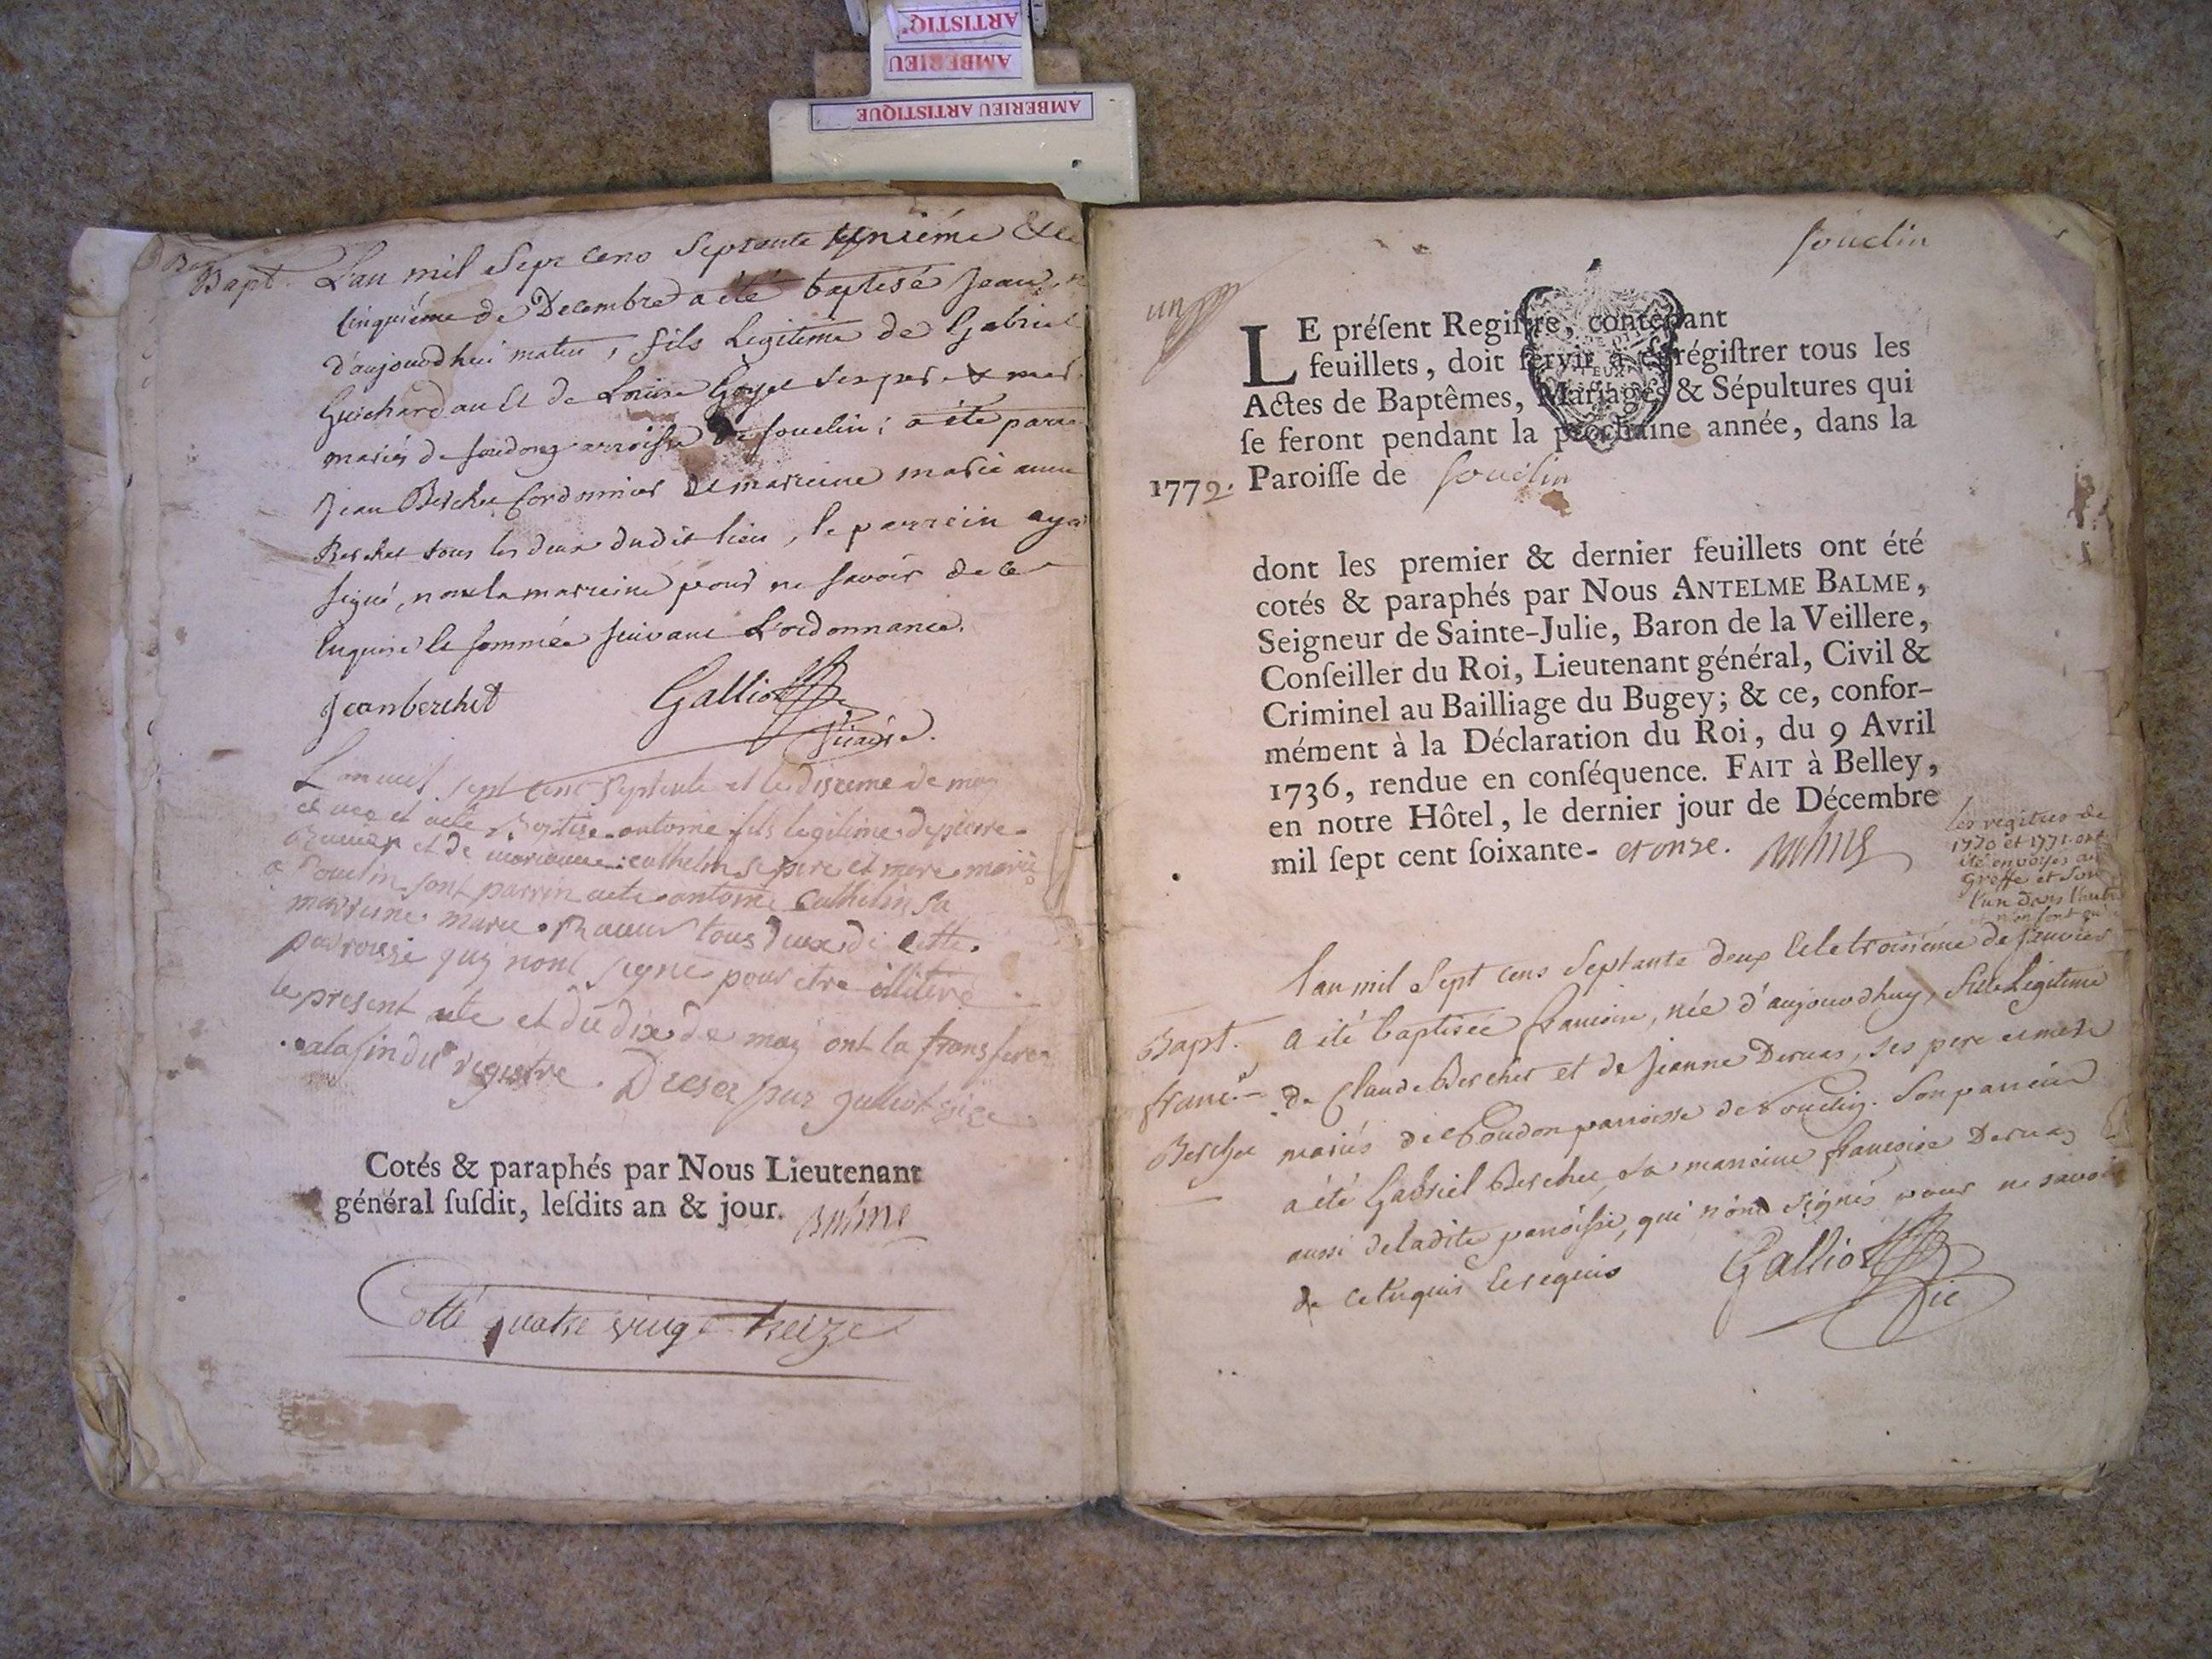 ARTISTIQ'
AMBERIEU
AMBERIEU ARTISTIQUE
Bapt. L'an mil Sept cens Septante unziéme & le
cinquiéme de Decembre a été baptisé Jean, n
d'aujourd'huy matin, fils Legitime de Gabriel
Guichard au & de Louise Goyet ses per & mer
mariés de soudon parroisse de souclin; a été parre
Jean Berchet Cordonnier & marreine marie anne
Berchet tous les deux dudit lieu, le parrein aya
signé, non la marreine pour ne savoir de ce
enquise & sommée suivant L'ordonnance.
Jean berchet Galliot
Vicaire.
L'an mil sept cent septente et le disieme de may
et nee et aete Batise antoine fils legitime de pierre
et de marianne cathelin se pere et mere marie
a Souclin sont parrin aete antoine Cathelin sa
marreine marie tous deux de cette
parroise quy nont signe pour etre illitere
le present acte et du dix de may ont la transfere
a la fin du registre. Dreser par galliot vice
Cotés & paraphés par Nous Lieutenant
général susdit, lesdits an & jour. Balme
Cotté quatre vingt treize
souclin
un
LE présent Registre, contenant
feuillets, doit servir à enrégistrer tous les
Actes de Baptêmes, Mariages & Sépultures qui
se feront pendant la prochaine année, dans la
1772. Paroisse de souclin
dont les premier & dernier feuillets ont été
cotés & paraphés par Nous ANTELME BALME,
Seigneur de Sainte-Julie, Baron de la Veillere,
Conseiller du Roi, Lieutenant général, Civil &
Criminel au Bailliage du Bugey; & ce, confor-
mément à la Déclaration du Roi, du 9 Avril
1736, rendue en conséquence. FAIT à Belley,
en notre Hôtel, le dernier jour de Décembre
mil sept cent soixante- et onze. Balme
les regitres de
1770 et 1771 ont
été envoyés au
greffe et son
l'un dans l'autre
et n'en font qu
l'an mil Sept cens Septante deux & le troisiéme de janvier
Bapt. a été baptisée francoise, née d'aujourdhuy, fille Legitime
franc.se de Claude Berchet et de Jeanne Deruas, ses pere et mere
Berchet mariés de Soudon parroisse de Souclin. Son parrein
a été Gabriel Berchet, sa marreine francoise Deruas
aussi de ladite parroisse, qui n'ont signés pour ne savoir
de ce enquis & requis Galliot
Vic